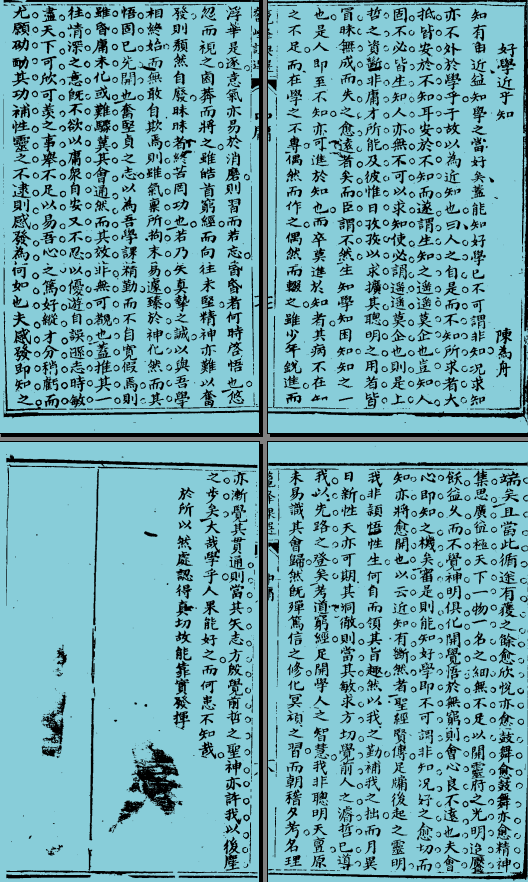 好學近乎知　陳為舟
知有由近益知學之當好矣蓋能知好學已不可謂非知況求知
亦不外於學乎子故以為近知也曰人之自是而不知所求者大
抵皆安於不知耳安於不知而遂謂生知之遙遙莫企也豈知人
固不必皆生知人亦無不可以求知使必謂遙遙莫企則是上
哲之資斷非庸才所能及彼惟日孜孜以求擴其聰明之用者皆
冒昧無成而失之愈遠者矣而臣謂不然生知學知困知知之一
也是人即至不知亦可進於知也而卒莫進於知者其病不在知
之不足而在學之不專偶然而作之偶然而輟之雖少年銳進而
浮華是逐意氣亦易於消磨則習而若忘昏昏者何時啓悟也悠
忽而視之鹵莽而將之雖皓首窮經而向往未堅精神亦難以奮
發則頹然自廢昧昧者終苦罔功也若乃矢真摯之誠以與吾學
相終始而無敢自欺焉則雖氣稟所拘未易遽臻於神化然而其
悟固已先開也奮堅貞之志以為吾學課精勤而不自寬假焉則
雖昏庸未化或難驟冀其會通然而其效非無可觀也蓋推其一
往情深之意既不欲以庸衆自安又不忍以優遊自誤遜志時敏
盡天下可欣可羨之事舉不足以易吾心之篤好縱才分稍虧而
尤願劬劬其功補性靈之不逮則感發為何如也夫感發即知之
端矣且當此循途有獲之餘愈欣悅亦愈鼓舞愈鼓舞亦愈精神
集思廣益極天下一物一名之細無不足以開靈府之光明追饜
飫益久而不覺神明俱化開覺悟於無窮則會心良不遠也夫會
心即知之機矣審是則能知好學即不可謂非知況好之愈切而
知亦將愈開也以云近知有斷然者聖經賢傳足牖後起之靈明
我非穎悟性生何自而領其旨趣然以我之勤補我之拙而月異
日新性天亦可期其洞徹則當其敏求方切覺前人之濬哲已導
我以先路之登矣若道窮經足開學人之智慧我非聰明天亶原
未易識其會歸然既殫篤信之修化冥頑之習而朝稽夕考名理
亦漸覺其貫通則當其矢志方殷覺前哲之聖神亦許我以後塵
之步矣大哉學乎人果能好之而何患不知哉
於所以然處認得真切故能靠實發揮